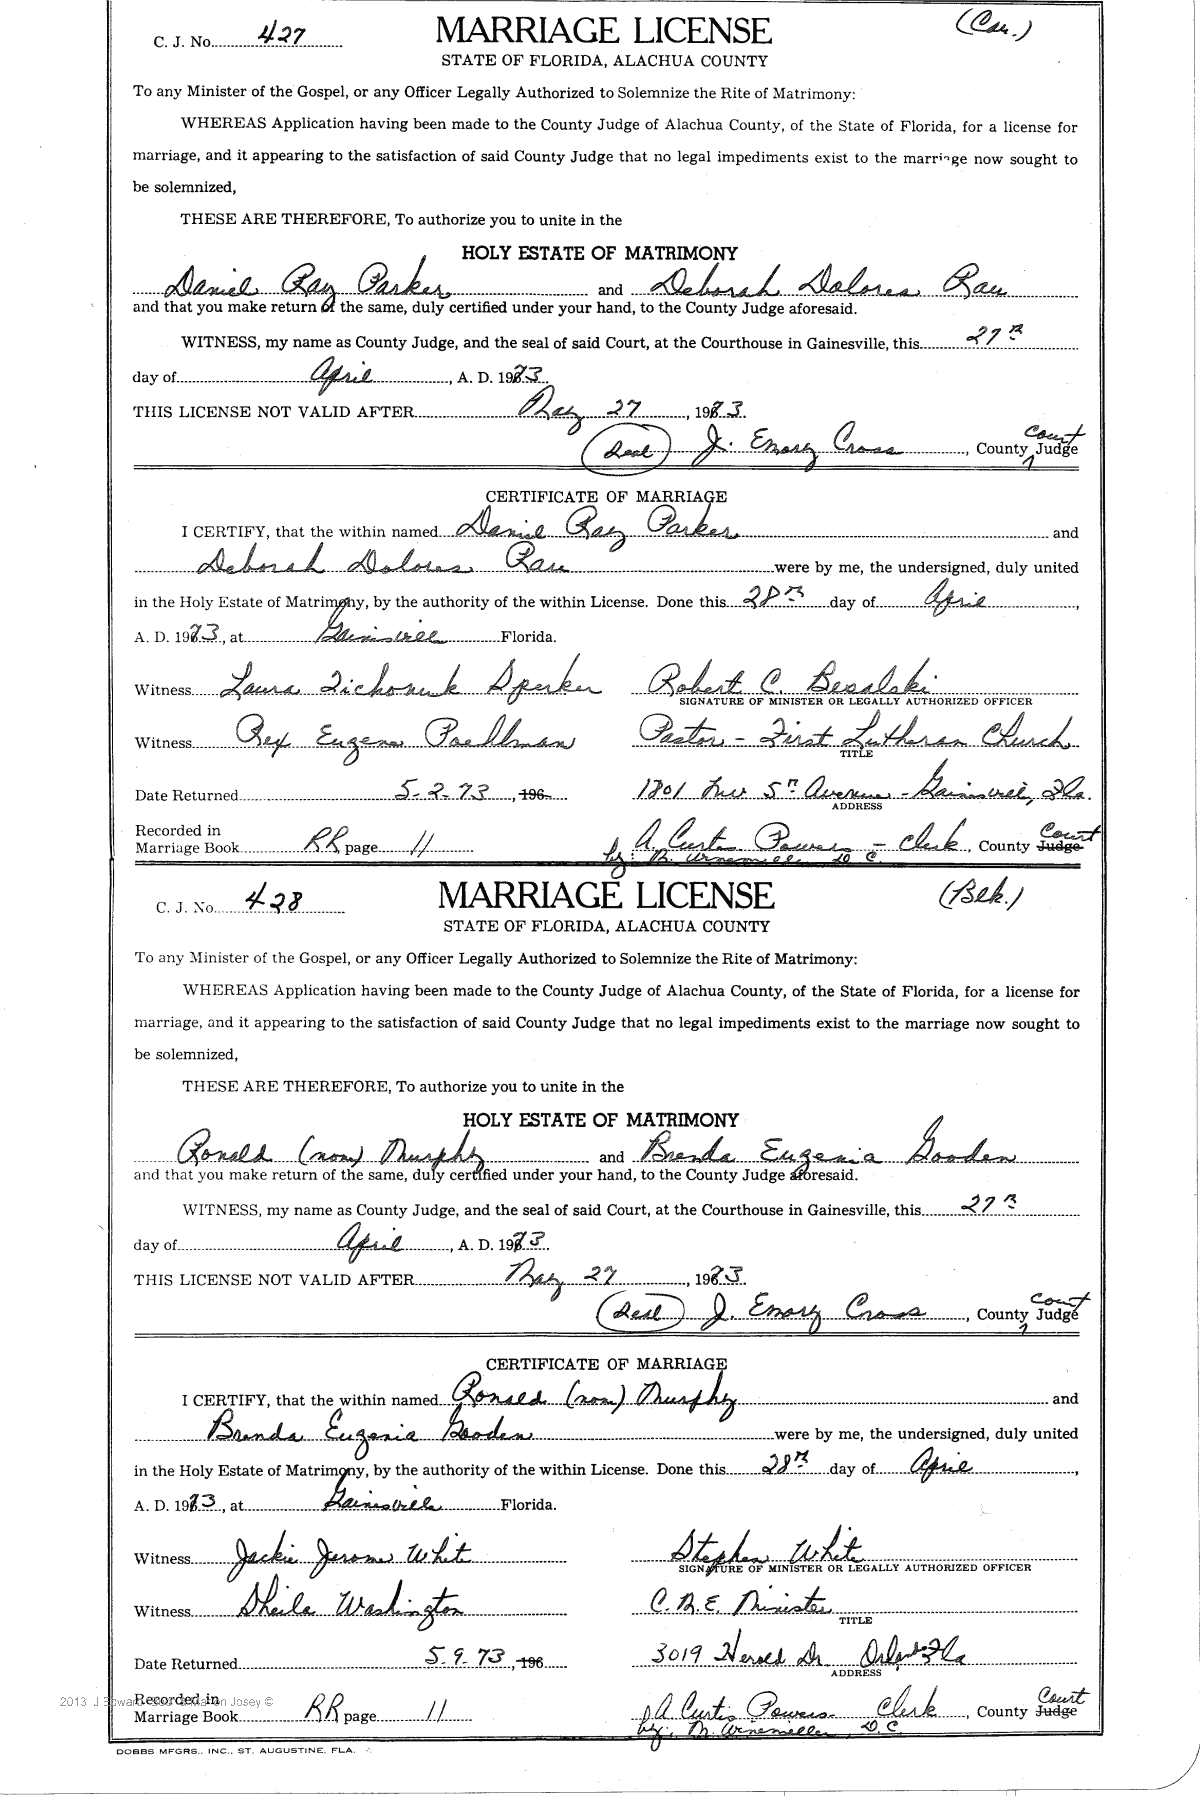 C. J. No. 427 MARRIAGE LICENSE (Cau.)
STATE OF FLORIDA, ALACHUA COUNTY
To any Minister of the Gospel, or any Officer Legally Authorized to Solemnize the Rite of Matrimony:
WHEREAS Application having been made to the County Judge of Alachua County, of the State of Florida, for a license for
marriage, and it appearing to the satisfaction of said County Judge that no legal impediments exist to the marriage now sought to
be solemnized,
THESE ARE THEREFORE, To authorize you to unite in the
HOLY ESTATE OF MATRIMONY
Daniel Ray Parker and Deborah Dolores Rau
and that you make return of the same, duly certified under your hand, to the County Judge aforesaid.
WITNESS, my name as County Judge, and the seal of said Court, at the Courthouse in Gainesville, this 27th
day of April, A. D. 1973.
THIS LICENSE NOT VALID AFTER May 27, 1973.
(Seal) J. Emory Cross, County Court Judge
CERTIFICATE OF MARRIAGE
I CERTIFY, that the within named Daniel Ray Parker and
Deborah Dolores Rau were by me, the undersigned, duly united
in the Holy Estate of Matrimony, by the authority of the within License. Done this 28th day of April,
A. D. 1973, at Gainesville Florida.
Witness Laura Sperker Robert C. Besalski
SIGNATURE OF MINISTER OR LEGALLY AUTHORIZED OFFICER
Witness Rex Eugene Poellman Pastor - First Lutheran Church
TITLE
Date Returned 5-2-73, 196 1801 NW 5th Avenue - Gainesville, Fla.
ADDRESS
Recorded in
Marriage Book RR page 11 A. Curtis Powers - Clerk, County Court Judge
by: M. D. C.
C. J. No. 428 MARRIAGE LICENSE (Blk.)
STATE OF FLORIDA, ALACHUA COUNTY
To any Minister of the Gospel, or any Officer Legally Authorized to Solemnize the Rite of Matrimony:
WHEREAS Application having been made to the County Judge of Alachua County, of the State of Florida, for a license for
marriage, and it appearing to the satisfaction of said County Judge that no legal impediments exist to the marriage now sought to
be solemnized,
THESE ARE THEREFORE, To authorize you to unite in the
HOLY ESTATE OF MATRIMONY
Ronald (nmn) Murphy and Brenda Eugenia Gooden
and that you make return of the same, duly certified under your hand, to the County Judge aforesaid.
WITNESS, my name as County Judge, and the seal of said Court, at the Courthouse in Gainesville, this 27th
day of April, A. D. 1973.
THIS LICENSE NOT VALID AFTER May 27, 1973.
(Seal) J. Emory Cross, County Court Judge
CERTIFICATE OF MARRIAGE
I CERTIFY, that the within named Ronald (nmn) Murphy and
Brenda Eugenia Gooden were by me, the undersigned, duly united
in the Holy Estate of Matrimony, by the authority of the within License. Done this 28th day of April,
A. D. 1973, at Gainesville Florida.
Witness Jackie Jerome White Stephen White
SIGNATURE OF MINISTER OR LEGALLY AUTHORIZED OFFICER
Witness Sheila Washington C.M.E. Minister
TITLE
Date Returned 5-9-73, 196 3019 Herold Dr. Orlando Fla
ADDRESS
Recorded in
Marriage Book RR page 11 A. Curtis Powers - Clerk, County Court Judge
by: M. D. C.
DOBBS MFGRS., INC., ST. AUGUSTINE, FLA.